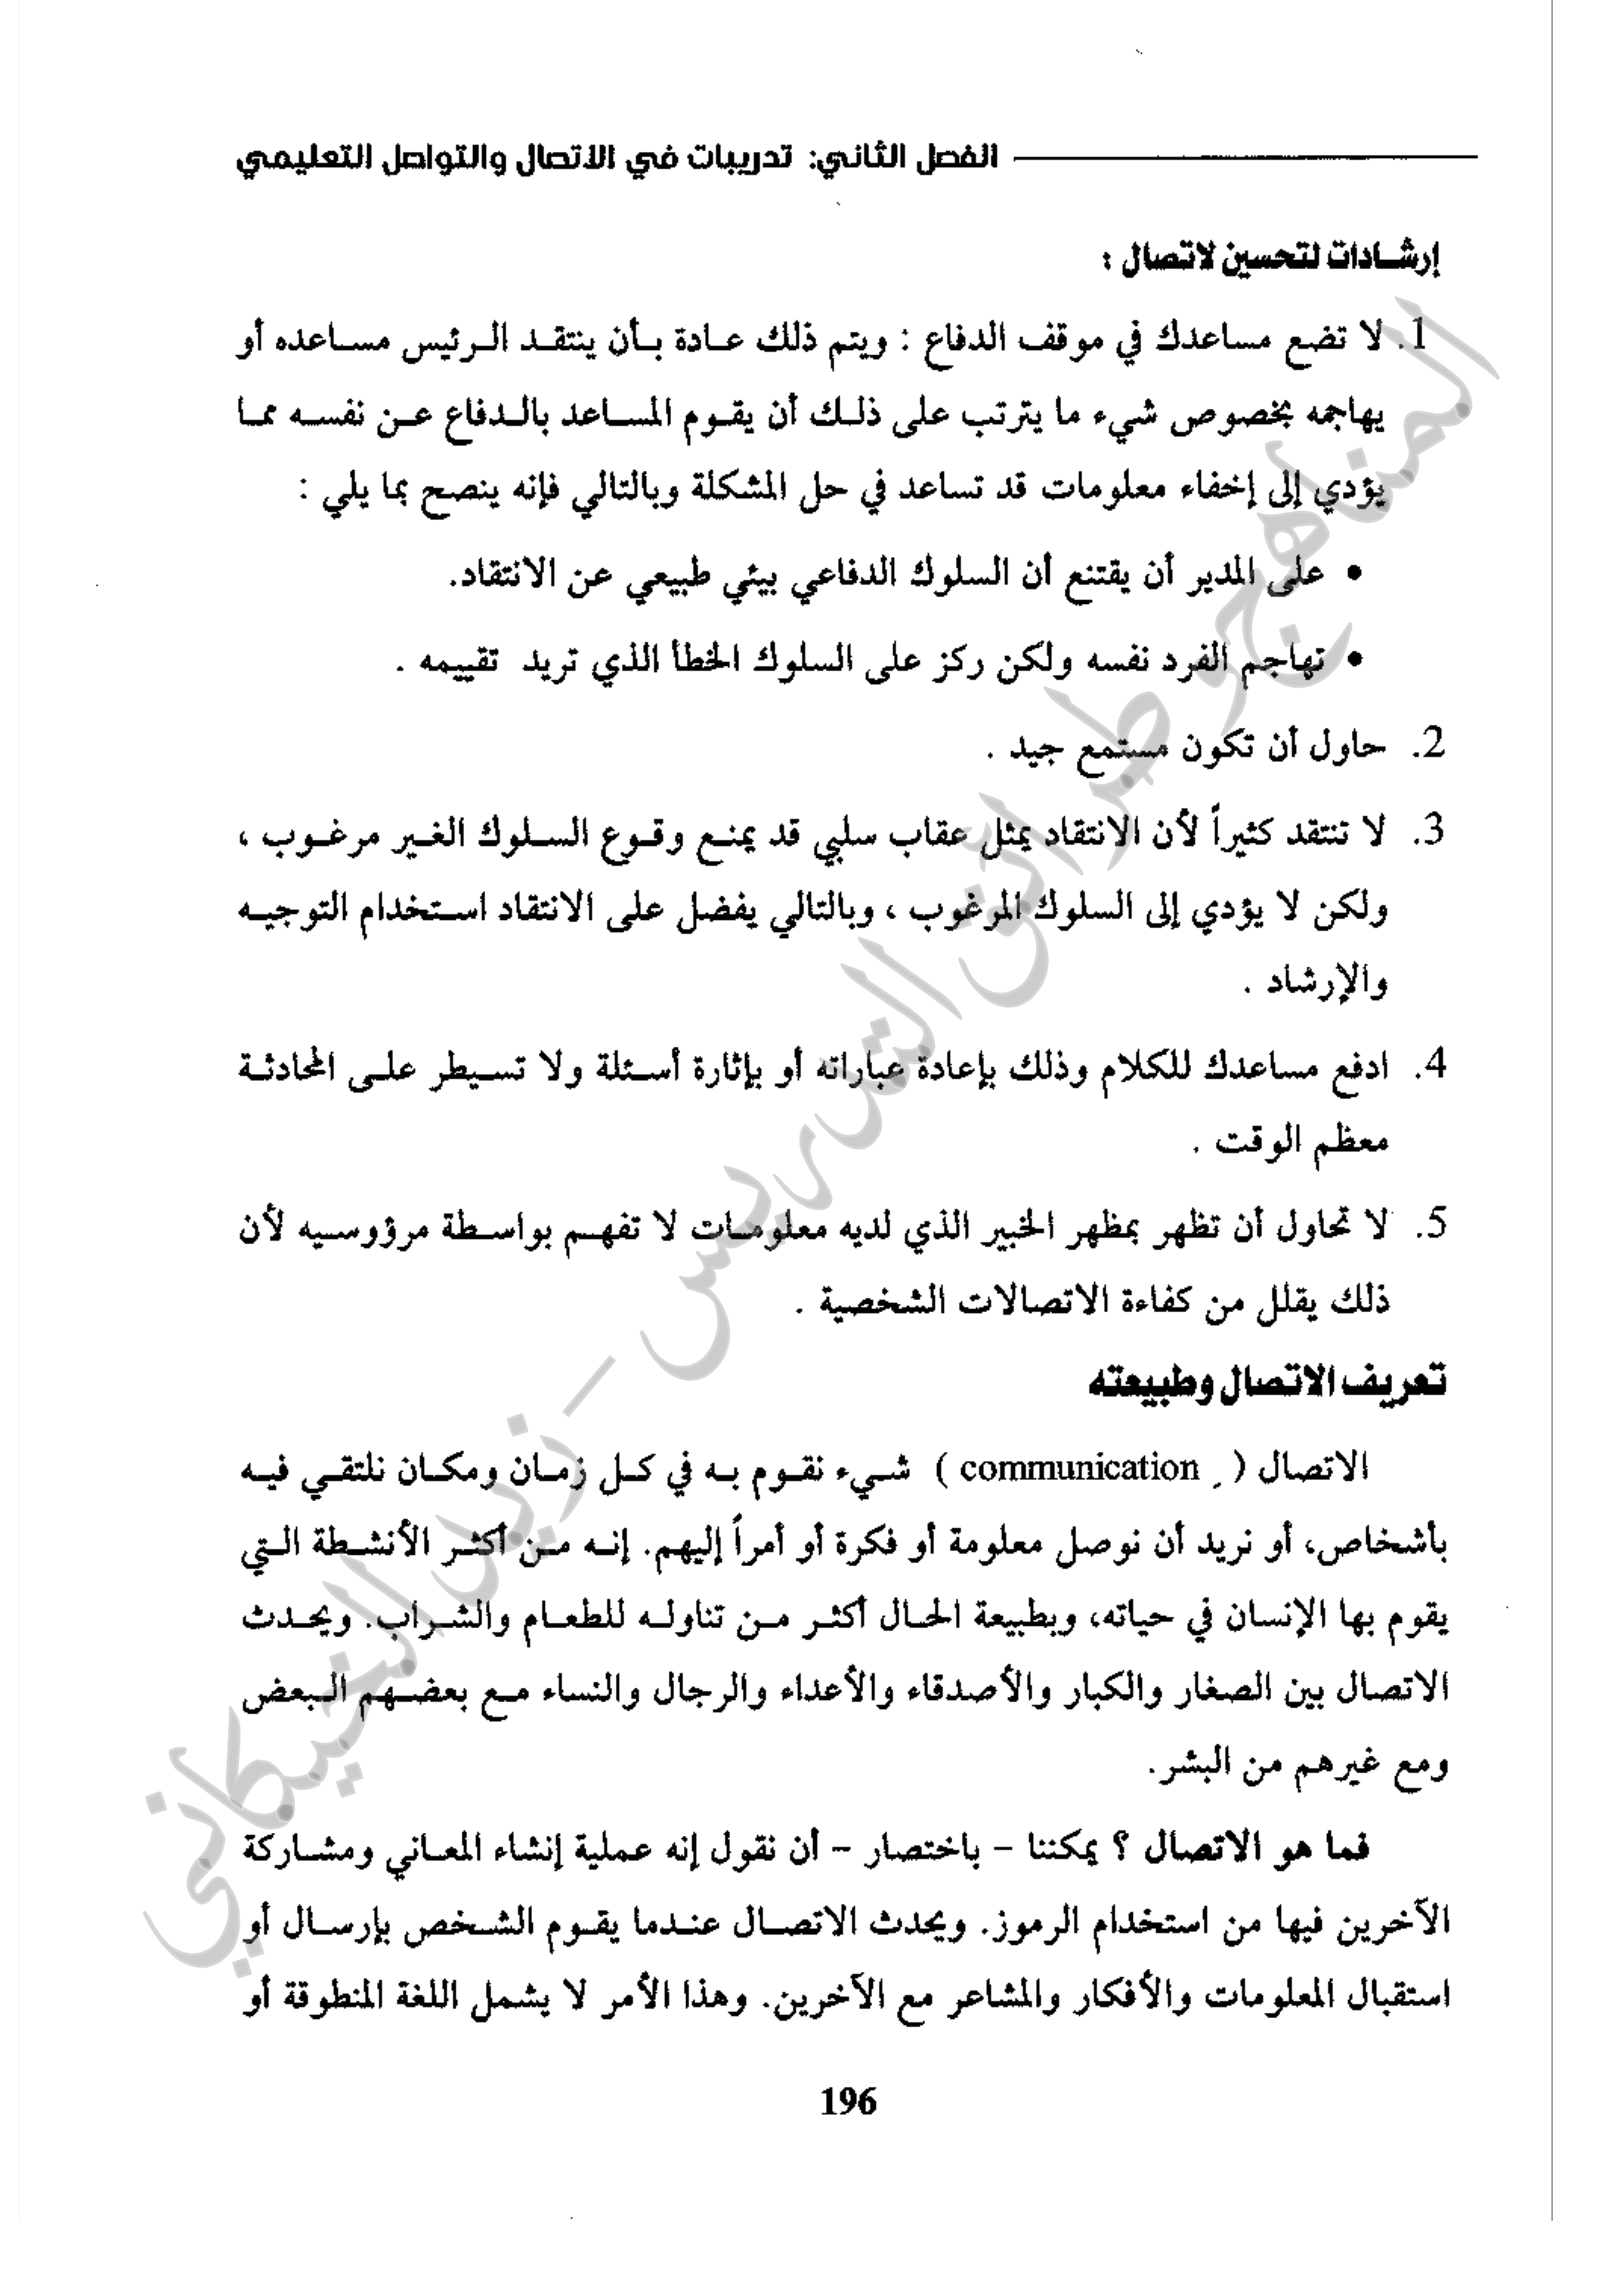 الفصل الثاني: تدريبات في الاتصال والتواصل التعليمي
إرشادات لتحسين لاتصال :
1. لا تضع مساعدك في موقف الدفاع : ويتم ذلك عادة بأن ينتقد الرئيس مساعده أو
يهاجمه بخصوص شيء ما يترتب على ذلك أن يقوم المساعد بالدفاع عن نفسه مما
يؤدي إلى إخفاء معلومات قد تساعد في حل المشكلة وبالتالي فإنه ينصح بما يلي :
• على المدير أن يقتنع أن السلوك الدفاعي بيئي طبيعي عن الانتقاد.
• تهاجم الفرد نفسه ولكن ركز على السلوك الخطأ الذي تريد تقييمه .
2. حاول أن تكون مستمع جيد .
3. لا تنتقد كثيراً لأن الانتقاد يمثل عقاب سلبي قد يمنع وقوع السلوك الغير مرغوب ،
ولكن لا يؤدي إلى السلوك المرغوب ، وبالتالي يفضل على الانتقاد استخدام التوجيه
والإرشاد .
4. ادفع مساعدك للكلام وذلك بإعادة عباراته أو بإثارة أسئلة ولا تسيطر على المحادثة
معظم الوقت .
5. لا تحاول أن تظهر بمظهر الخبير الذي لديه معلومات لا تفهم بواسطة مرؤوسيه لأن
ذلك يقلل من كفاءة الاتصالات الشخصية .
تعريف الاتصال وطبيعته
الاتصال ( communication ) شيء نقوم به في كل زمان ومكان نلتقي فيه
بأشخاص، أو نريد أن نوصل معلومة أو فكرة أو أمراً إليهم. إنه من أكثر الأنشطة التي
يقوم بها الإنسان في حياته، وبطبيعة الحال أكثر من تناوله للطعام والشراب. ويحدث
الاتصال بين الصغار والكبار والأصدقاء والأعداء والرجال والنساء مع بعضهم البعض
ومع غيرهم من البشر.
فما هو الاتصال ؟ يمكننا – باختصار – أن نقول إنه عملية إنشاء المعاني ومشاركة
الآخرين فيها من استخدام الرموز. ويحدث الاتصال عندما يقوم الشخص بإرسال أو
استقبال المعلومات والأفكار والمشاعر مع الآخرين. وهذا الأمر لا يشمل اللغة المنطوقة أو
196
المناهج وطرائق التدريس – زيد الخيكاني